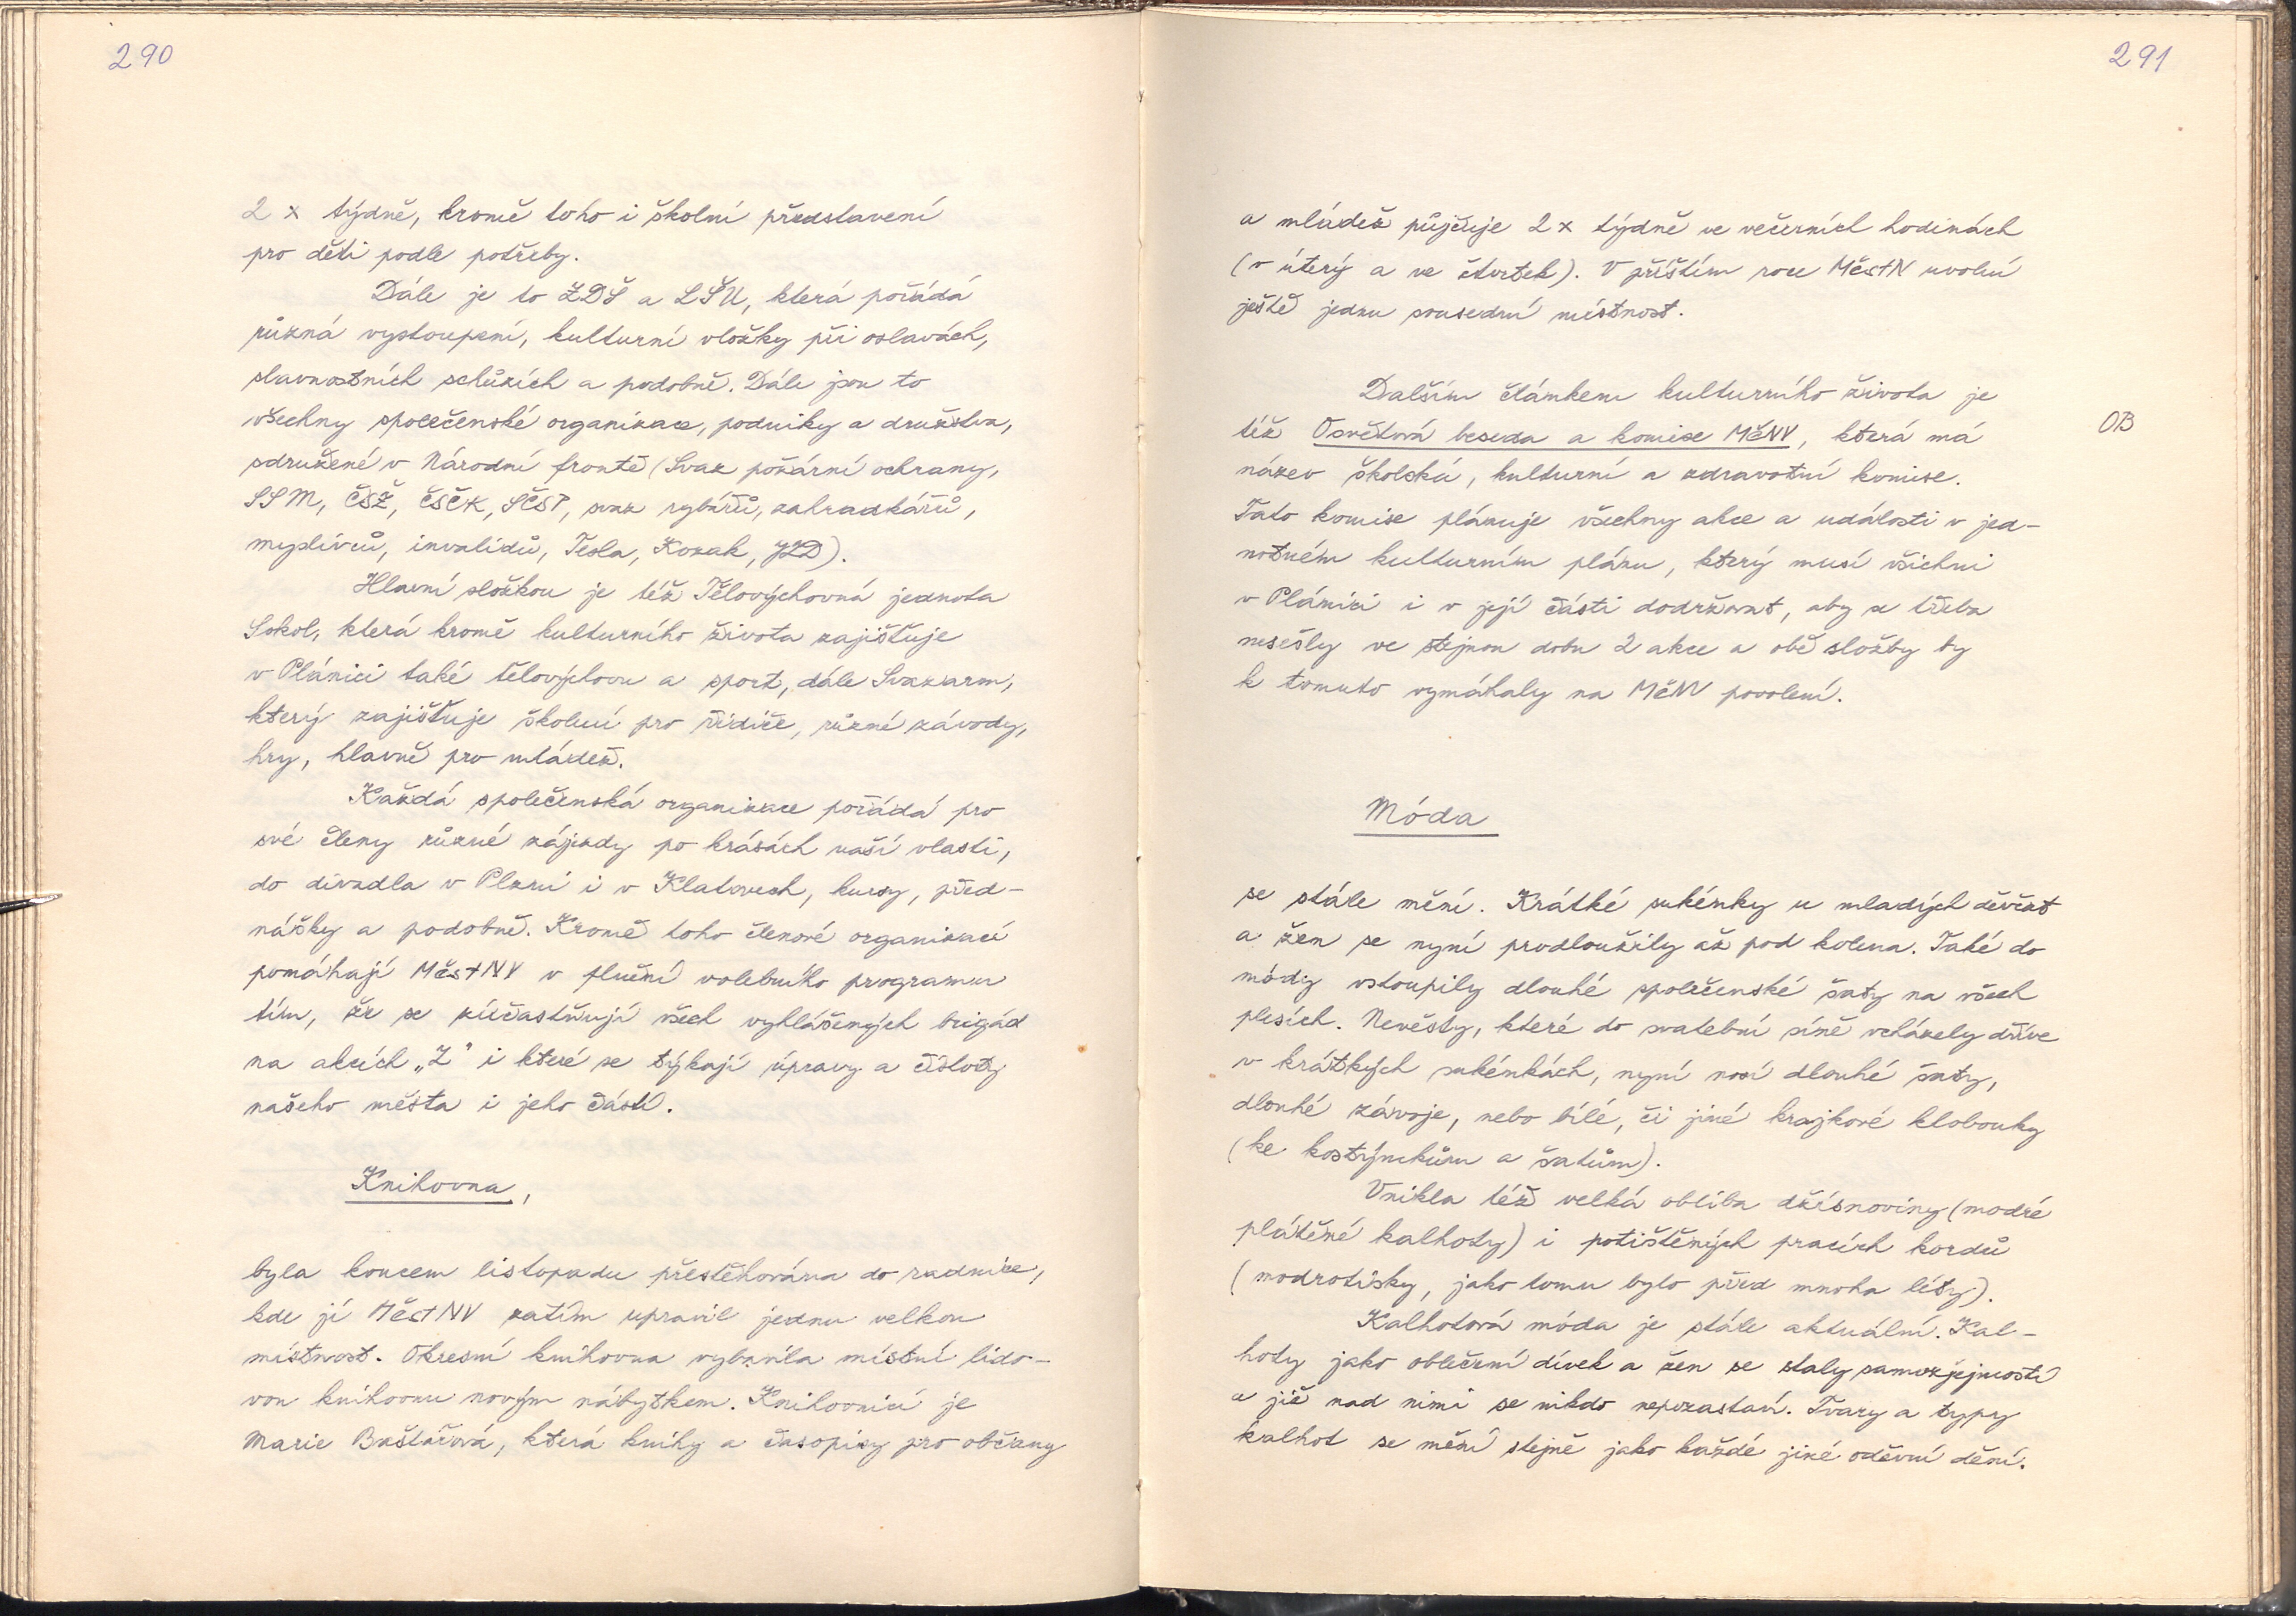 290
2 x týdně, kromě toho i školní představení
pro děti podle potřeby.
Dále je to ZDŠ a LŠU, která pořádá
různá vystoupení, kulturní vložky při oslavách,
slavnostních schůzích a podobně. Dále jsou to
všechny společenské organizace, podniky a družstva,
sdružené v Národní frontě (Svaz požární ochrany,
SSM, ČSŽ, ČSČK, SČSP, svaz rybářů, zahradkářů,
myslivců, invalidů, Tesla, Kozak, JZD).
Hlavní složkou je též Tělovýchovná jednota
Sokol, která kromě kulturního života zajišťuje
v Plánici také tělovýchovu a sport, dále Svazarm,
který zajišťuje školení pro řidiče, různé závody,
hry, hlavně pro mládež.
Každá společenská organizace pořádá pro
své členy různé zájezdy po krásách naší vlasti,
do divadla v Plzni i v Klatovech, kursy, před-
nášky a podobně. Kromě toho členové organizací
pomáhají MěstNV v plnění volebního programu
tím, že se zúčastňují všech vyhlášených brigád
na akcích „Z" i které se týkají úpravy a čistoty
našeho města i jeho částí.
Knihovna,
byla koncem listopadu přestěhována do radnice,
kde jí MěstNV zatím upravil jednu velkou
místnost. Okresní knihovna vybavila místní lido-
vou knihovnu novým nábytkem. Knihovnicí je
Marie Baštářová, která knihy a časopisy pro občany
291
a mládež půjčuje 2 x týdně ve večerních hodinách
(v úterý a ve čtvrtek). V příštím roce MěstN uvolní
ještě jednu sousední místnost.
Dalším článkem kulturního života je
též Osvětová beseda a komise MěNV, která má
OB
název školská, kulturní a zdravotní komise.
Tato komise plánuje všechny akce a události v jed-
notném kulturním plánu, který musí všichni
v Plánici i v její části dodržovat, aby se třeba
nesešly ve stejnou dobu 2 akce a obě složky by
k tomuto vymáhaly na MěNV povolení.
Móda
se stále mění. Krátké sukénky u mladých děvčat
a žen se nyní prodloužily až pod kolena. Také do
módy vstoupily dlouhé společenské šaty na všech
plesích. Nevěsty, které do svatební síně vcházely dříve
v krátkých sukénkách, nyní nosí dlouhé šaty,
dlouhé závoje, nebo bílé, či jiné krajkové klobouky
(ke kostýmkům a šatům).
Vnikla též velká obliba džísnoviny (modré
plátěné kalhoty) i potištěných pracích kordů
(modrotisky, jako tomu bylo před mnoha léty).
Kalhotová móda je stále aktuální. Kal-
hoty jako oblečení dívek a žen se staly samozřejmostí
a již nad nimi se nikdo nepozastaví. Tvary a typy
kalhot se mění stejně jako každé jiné oděvní dění.